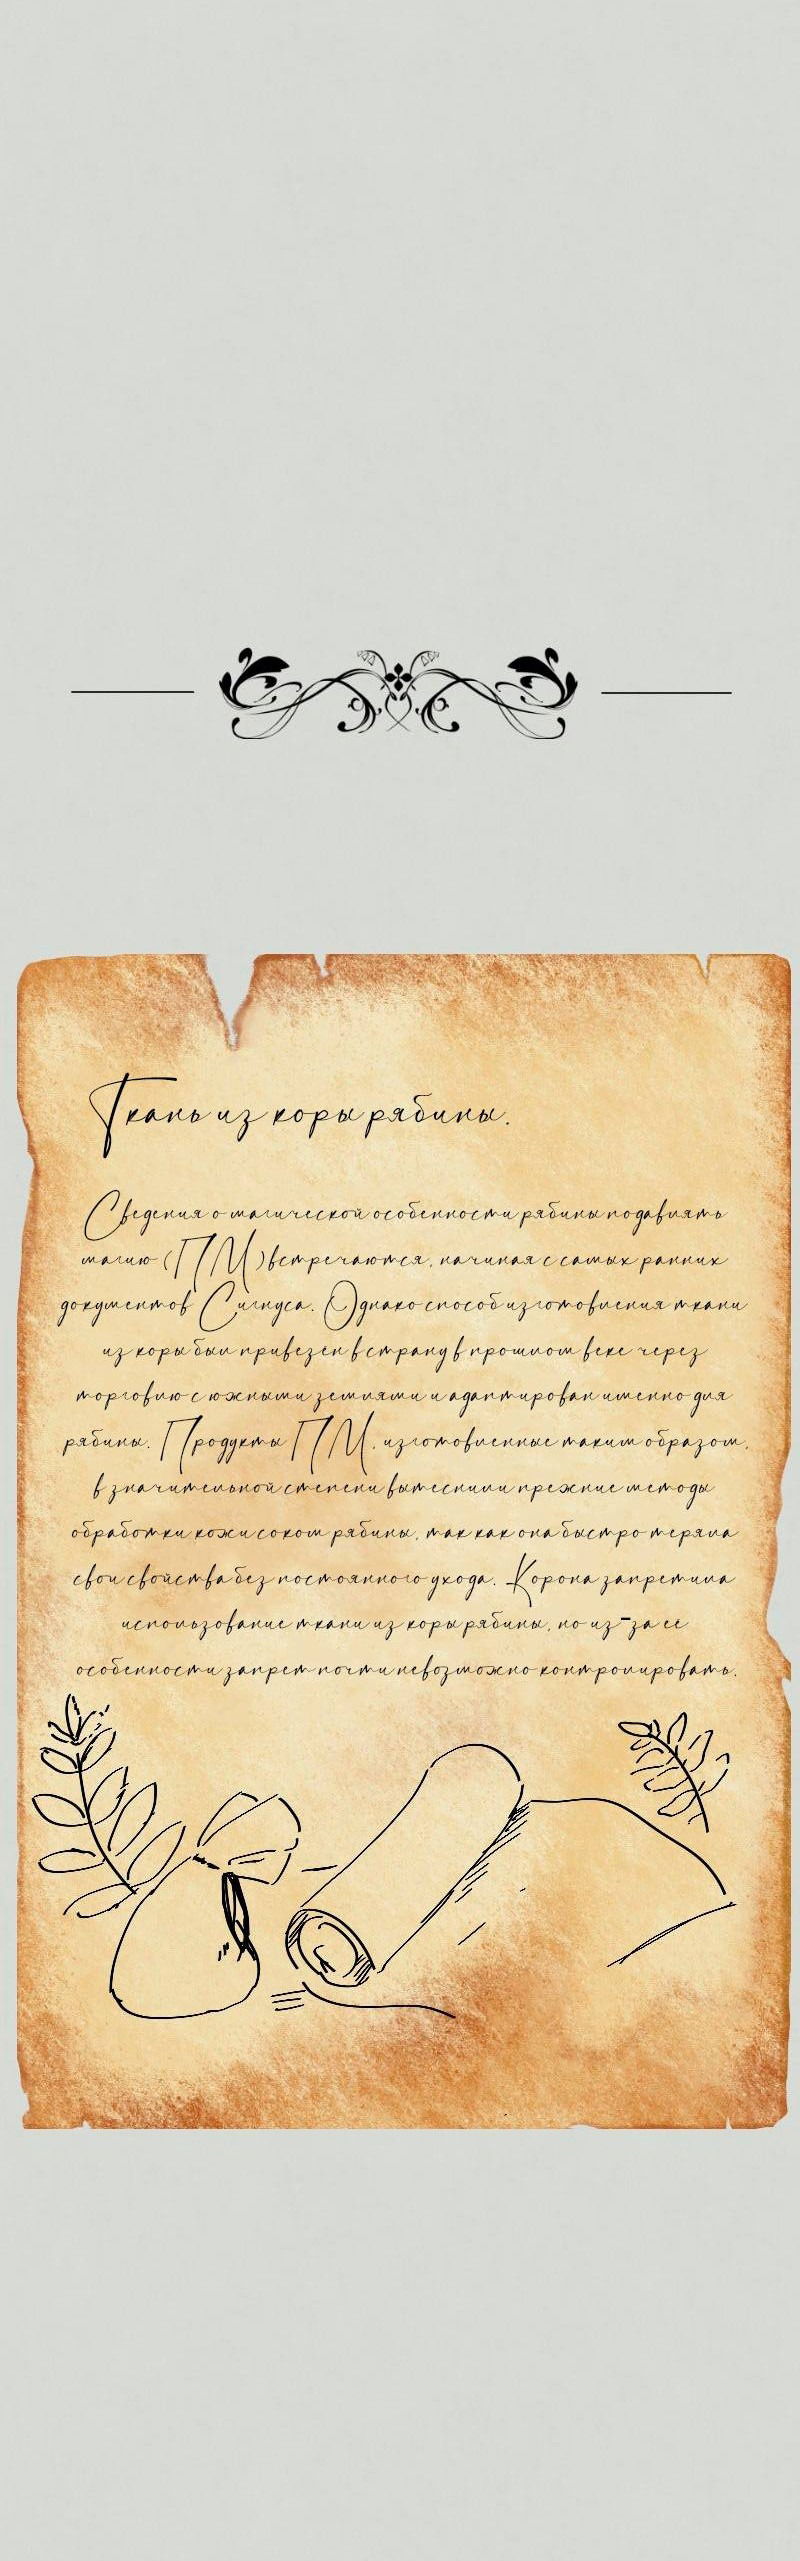 Ткань из коры рябины.
Сведения о магической особенности рябины подавлять
магию (ПМ) встречаются, начиная с самых ранних
документов Сигнуса. Однако способ изготовления ткани
из коры был привезен в страну в прошлом веке через
торговлю с южными землями и адаптирован именно для
рябины. Продукты ПМ, изготовленные таким образом,
в значительной степени вытеснили прежние методы
обработки кожи соком рябины, так как она быстро теряла
свои свойства без постоянного ухода. Корона запретила
использование ткани из коры рябины, но из-за её
особенности запрет почти невозможно контролировать.